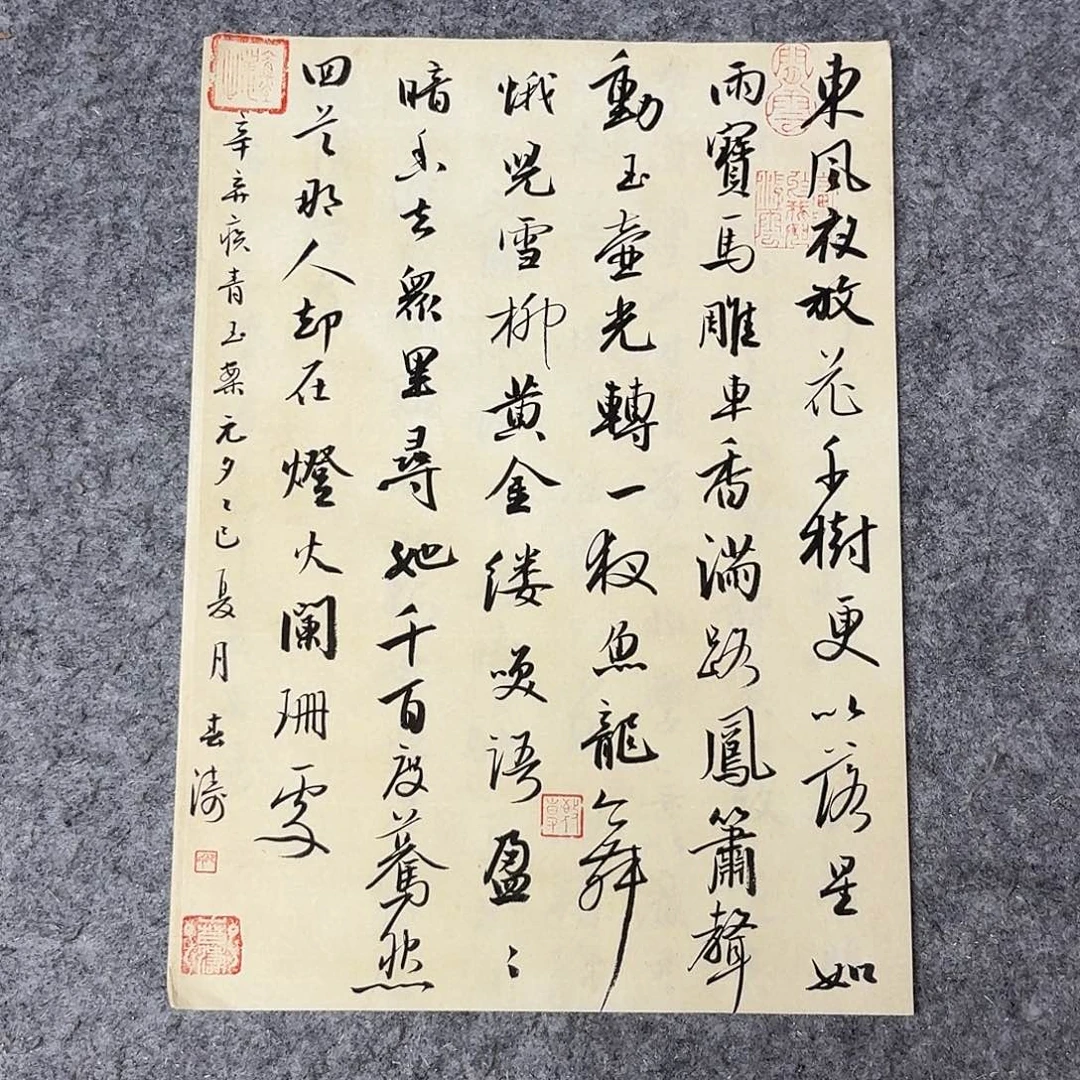 東風夜放花千樹更吹落星如
雨寶馬雕車香滿路鳳簫聲
動玉壺光轉一夜魚龍舞
蛾兒雪柳黄金縷笑語盈〻
暗香去眾里尋她千百度驀然
回首那人却在燈火闌珊處
辛弃疾青玉案元夕乙巳夏月 春濤